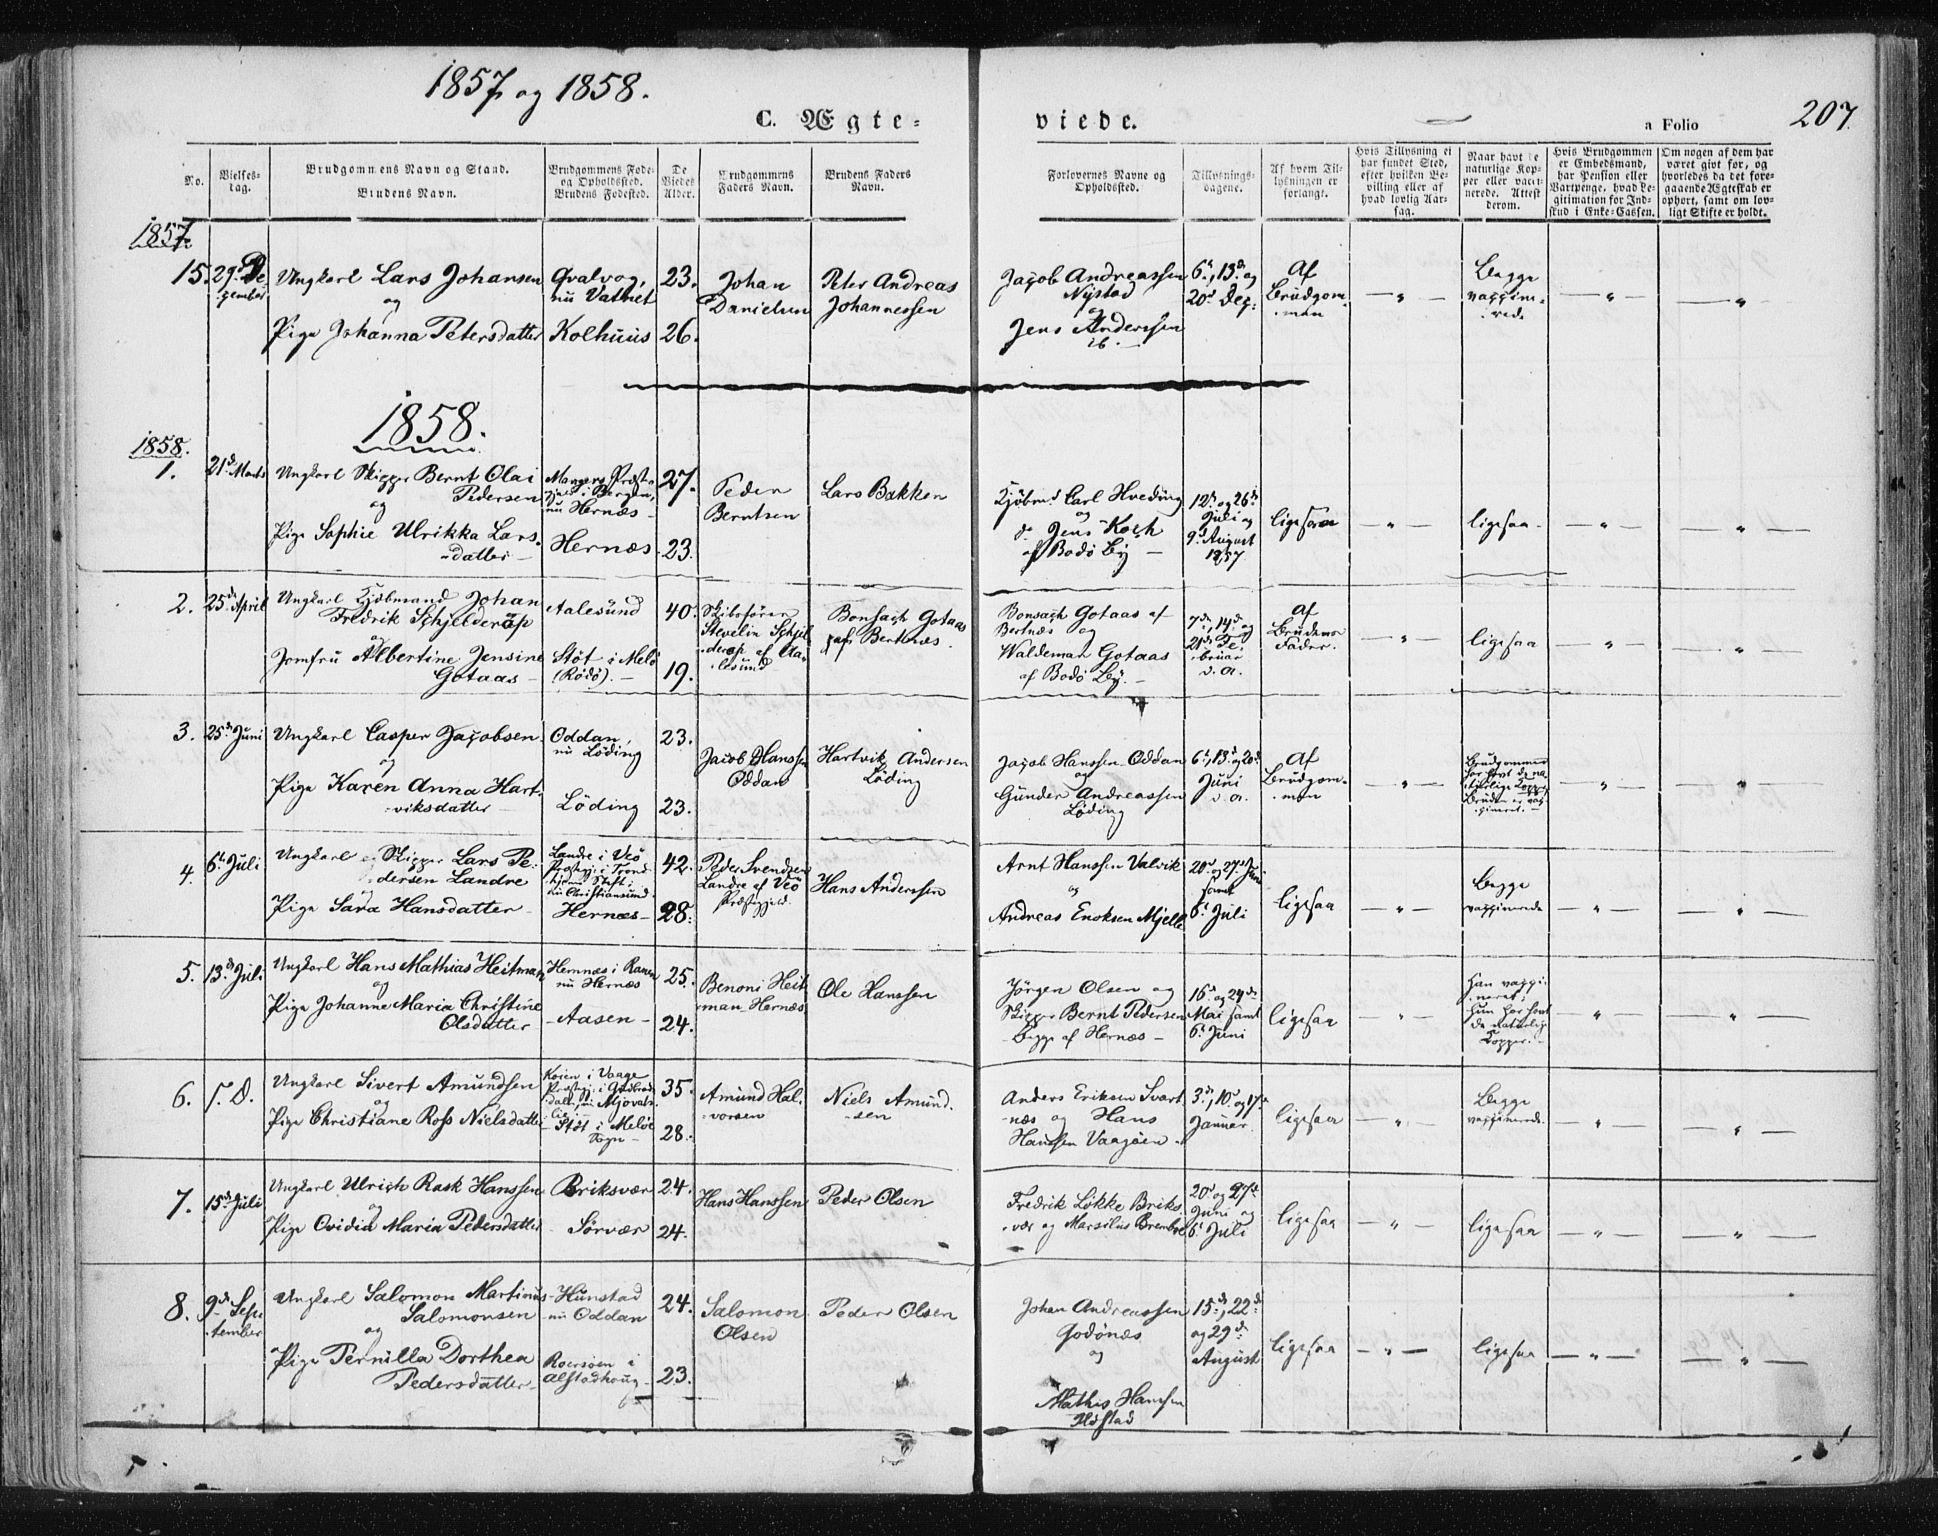 1857 og 1858.
C. Ægte-
viede.
a Folio
207.
No.
Vielses-
dag.
Brudgommens Navn og Stand.
Brudens Navn.
Brudgommens Føde-
og Opholdssted.
Brudens Fødested.
De
Viedes
Alder.
Brudgommens
Faders Navn.
Brudens Faders
Navn.
Forlovernes Navne og
Opholdssted.
Tillysnings-
dagene.
Af hvem Til-
lysningen er
forlangt.
Hvis Tillysning ei
har fundet Sted,
efter hvilken Be-
villing eller af
hvad lovlig Aar-
sag.
Naar havt de
naturlige Kop-
per eller vacci-
nerede. Attest
derom.
Hvis Brudgommen
er Embedsmand,
har Pension eller
Vartpenge, hvad Le-
gitimation for Ind-
skud i Enke-Cassen.
Om nogen af dem har
været givt før, og
hvorledes da det fore-
gaaende Ægteskab er
ophørt, samt om lov-
ligt Skifte er holdt.
1857.
15. 29. De
zember
Ungkarl Lars Johansen
og
Pige Johanna Petersdatter
Qvalvog,
nu Vatnet
Kolhuus
23.
26.
Johan
Danielsen
Peter Andreas
Johannessen
Jacob Andreassen
Nystad
og
Jens Anderssen
ib.
6t, 13d. og
20d. Dez:
Af
Brudgom-
men
— " —
Begge
vaxxine-
rede
— " —
— " —
1858.
1858.
1.
21d. Marts
Ungkarl Skipper Bernt Olai
Pedersen
og
Pige Sophie Ulrikka Lars-
datter
Mangers Præst-
gjeld i Bergen,
nu Hernæs
Hernæs
27.
23.
Peder
Berntsen
Lars Bakken
Kjøbmd. Carl Hveding
og
do Jens Koch
af Bodø By —
12d. og 26d.
Juli og
9d. August
1857.
ligesaa
— " —
ligesaa
— " —
— " —
2. 25d. April
Ungkarl Kjøbmand Johan
Fredrik Schjelderup
og
Jomfru Albertine Jensine
Gotaas
Aalesund
Støt i Melø
(Rødø). —
40.
19.
Skibsfører
Stevelin Schjel
derup af Aa-
lesund
Bonsach Gotaas
af Bertnæs.
Bonsach Gotaas af
Bertnæs og
Waldemar Gotaas
af Bodø By. —
7d., 14d. og
21d. Fe-
bruar
d. A.
Af
Brudens
Fader.
— " —
ligesaa
— " —
— " —
3. 25d. Juni
Ungkarl Casper Jacobsen
og
Pige Karen Anna Hart-
viksdatter
Oddan,
nu Løding
Løding
23.
23.
Jacob Hanssen
Oddan
Hartvik Andersen
Løding
Jacob Hanssen Oddan
og
Gunder Andreassen
Løding
6t, 13d. og 20d.
Juni
d. A.
Af
Brudgom-
men
— " —
Brudgommen
har havt de na-
turlige Kopper
Bruden er vax-
zineret. —
— " —
— " —
4. 6t. Juli
Ungkarl Skipper Lars Pe-
dersen Landre
og
Pige Sara Hansdatter
Landre i Veø
Præstgj: i Trond-
hjems Stift;
nu Christiansund
Hernæs
42.
28.
Peder Svendsen
Landre af Veø
Præstegjeld.
Hans Anderssen
Arnt Hanssen Valvik
og
Andreas Enoksen Mjelle
20d. og 27d. Juni
samt
6t. Juli
ligesaa
— " —
Begge
vaxxinerede
— " —
— " —
5. 13d. Juli
Ungkarl Hans Mathias Heitman
og
Pige Johanne Maria Christine
Olsdatter
Hemnæs i Ranen
nu Hernæs
Aasen
25.
24.
Benoni Heit-
man Hernæs
Ole Hanssen
Jørgen Olsen og
Skipper Bernt Pedersen
Begge af Hernæs —
16d. og 24d.
Mai samt
6t. Juni
ligesaa
— " —
Han vaxxi-
neret;
hun har havt
de naturlige
Kopper. —
— " —
— " —
6. S. D.
Ungkarl Sivert Amundsen
og
Pige Christiane Ross Nielsdatter
Præstgj: i Gudbrands-
Støt i Meløe
Sogn
35.
28.
Amund Hal-
vorsen
Niels Amund-
sen
Anders Eriksen Svart-
næs og Hans
Hanssen Vaagøen
3d., 10d. og 17d.
Januar
ligesaa
— " —
Begge
vaxxinerede.
— " —
— " —
7. 15d. Juli
Ungkarl Ulrich Rask Hanssen
og
Pige Ovidia Maria Pedersdatter
Briksvær
Sørvær
24.
24.
Hans Hanssen
Peder Olsen
Fredrik Løkke Briks-
vær og Marsilus Brembøe
20d. og 27d.
Juni og
6t. Juli
ligesaa
— " —
ligesaa
— " —
— " —
8. 9d. Sep-
tember
Ungkarl Salomon Martinus
Salomonsen
og
Pige Pernilla Dorthea
Pedersdatter
Hunstad
nu Oddan
i
Alstadhoug
24.
23.
Salomon
Olsen
Peder Olsen
Johan Andreassen
Godønæs
og
Mathis Hanssen
15d., 22d.
og 29d.
August
ligesaa
— " —
ligesaa
— " —
— " —